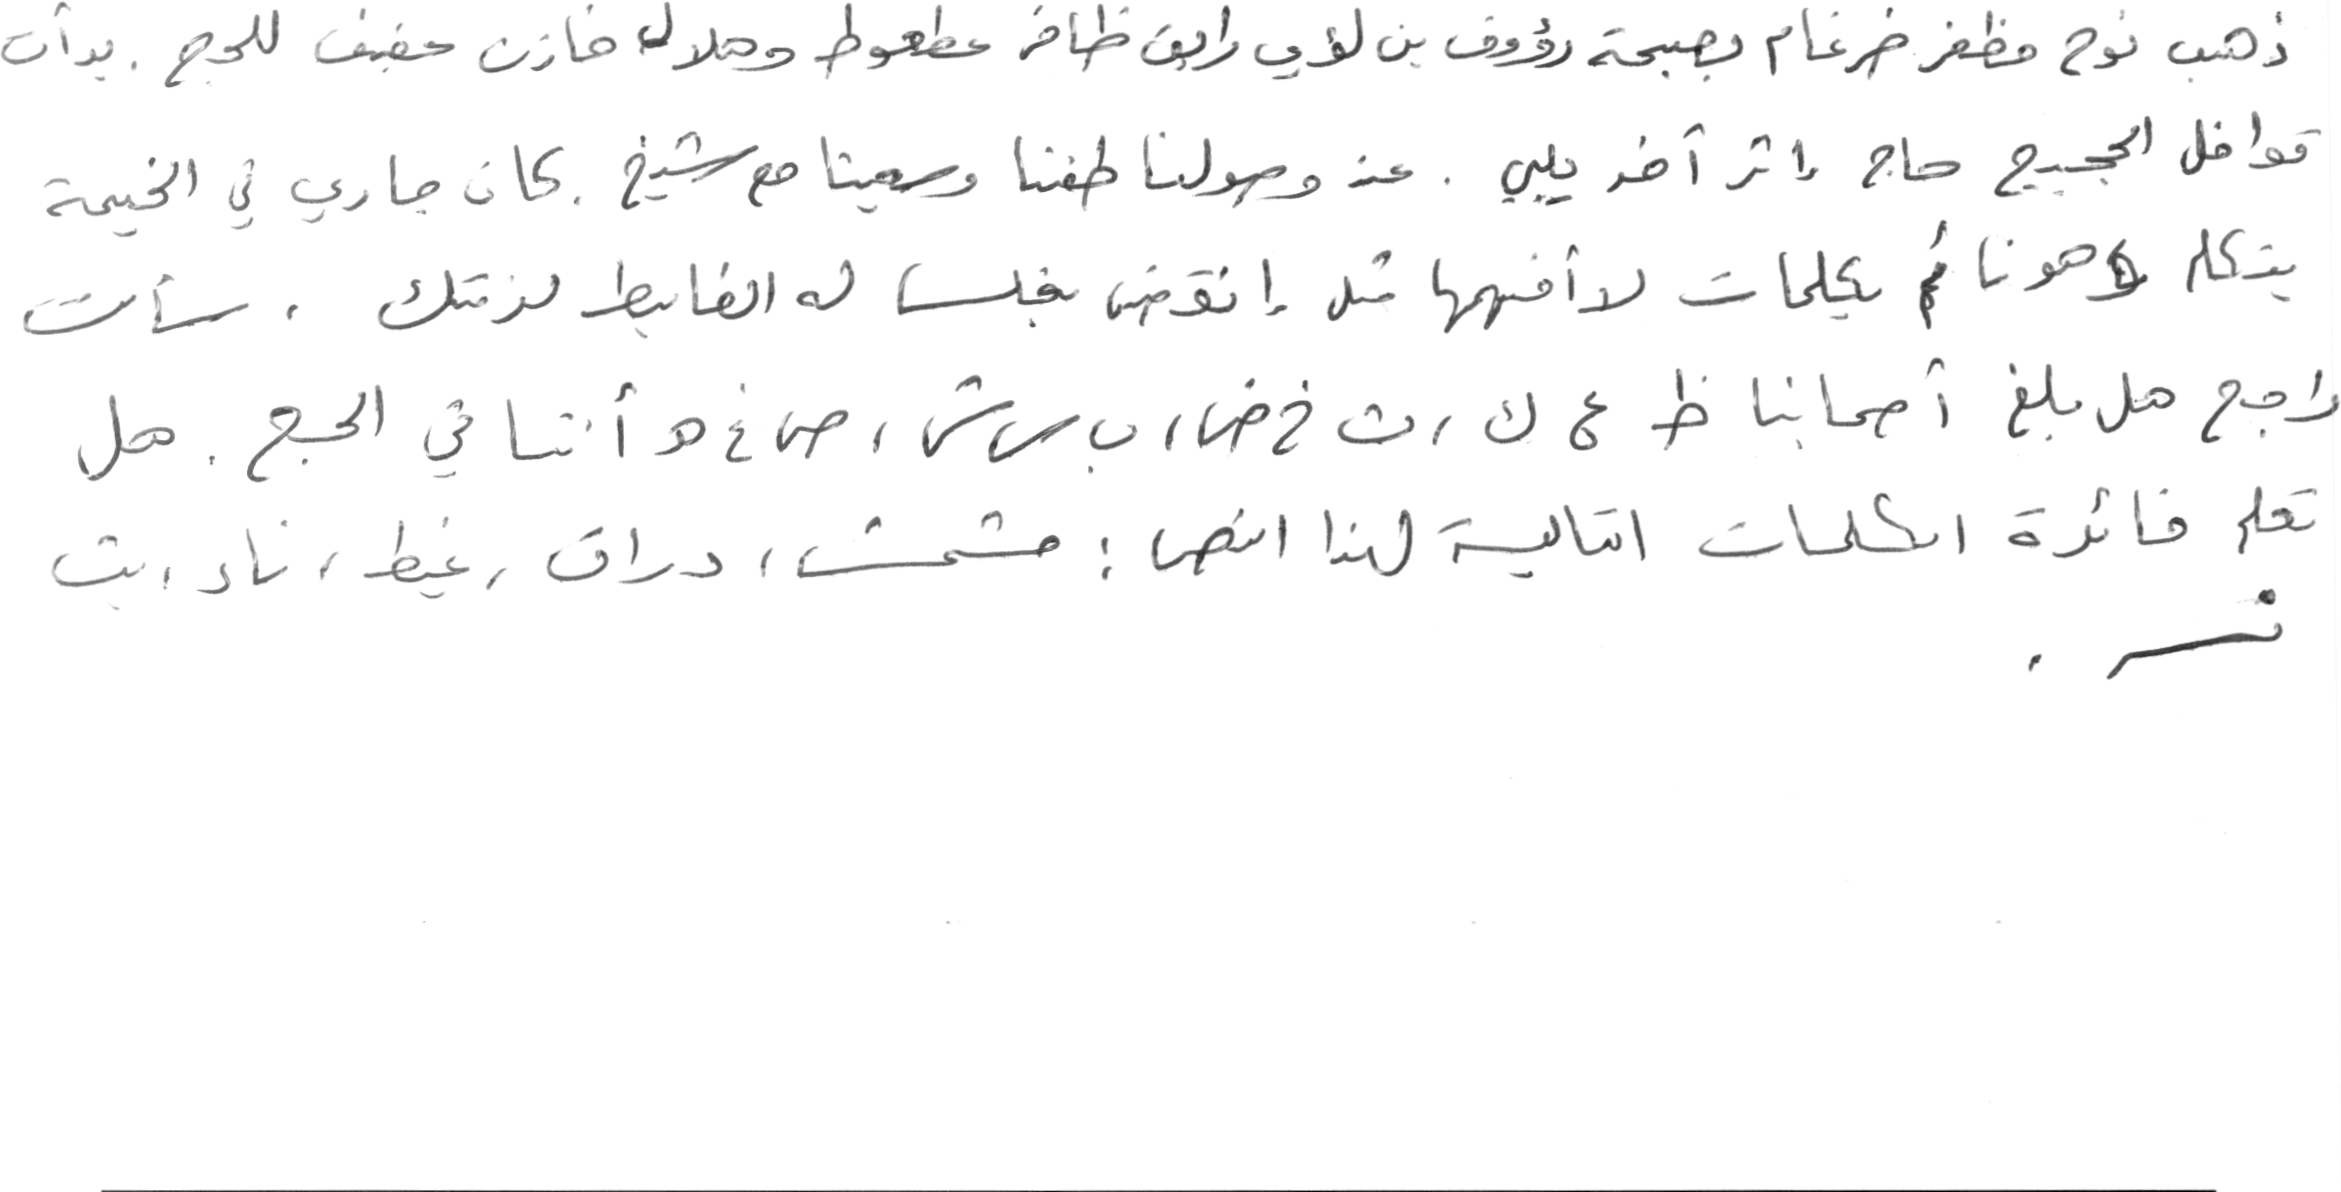 ذهب نوح مظفر ضرغام بصحبة رؤوف بن لؤي رايق ظافر عطعوط وهلال خازن عفيف للحج . بدأت
قوافل الحجيج حاج إثر آخر يلبي . عند وصولنا طفنا وسعينا مع شيخ . كان جاري في الخيمة
يتكلم بكلمات لا أفهمها مثل إنقض بغلسا له الضابط لزمتك . سألت
راجح هل بلغ أصحابنا ظ ع ك ، ث خ ض ، ب س ش ، ص غ هـ أننا في الحج . هل
تعلم فائدة الكلمات التالية لهذا النص : مشمش ، دراق ، غيظ ، ناد ، بث
نسر .